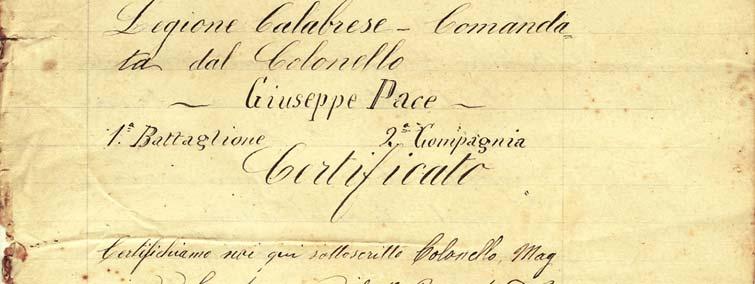 Legione Calabrese – Comanda-
ta dal Colonello
– Giuseppe Pace –
1.ª Battaglione 2.ª Compagnia
Certificato
Certifichiamo noi qui sottoscritto Colonello, Mag